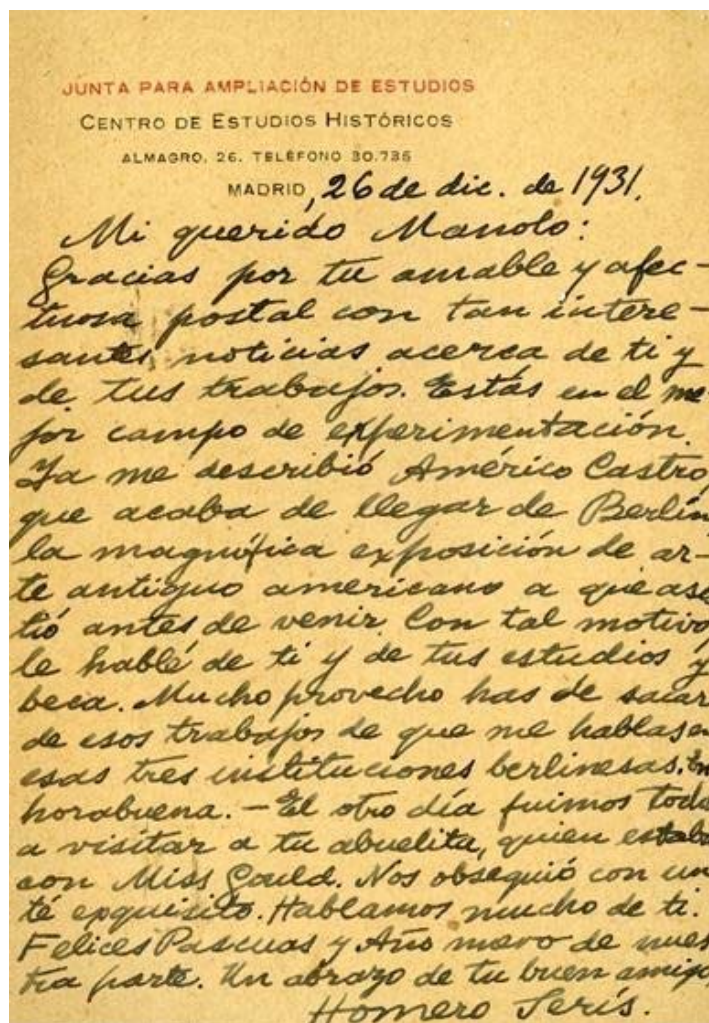 JUNTA PARA AMPLIACIÓN DE ESTUDIOS
CENTRO DE ESTUDIOS HISTÓRICOS
ALMAGRO, 26. TELÉFONO 30.736
MADRID, 26 de dic. de 1931.
Mi querido Manolo:
Gracias por tu amable y afec-
tuosa postal con tan intere-
santes noticias acerca de ti y
de tus trabajos. Estás en el me-
jor campo de experimentación.
Ya me describió Américo Castro,
que acaba de llegar de Berlín,
la magnífica exposición de ar-
te antiguo americano a que asis
tió antes de venir. Con tal motivo
le hablé de ti y de tus estudios y
beca. Mucho provecho has de sacar
de esos trabajos de que me hablas en
esas tres instituciones berlinesas. En
horabuena. – El otro día fuimos todos
a visitar a tu abuelita, quien estaba
con Miss Gould. Nos obsequió con un
té exquisito. Hablamos mucho de ti.
Felices Pascuas y Año nuevo de nues
tra parte. Un abrazo de tu buen amigo,
Homero Serís.